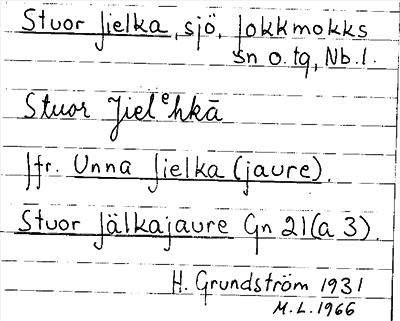 Stuor Jielka, sjö, Jokkmokks
sn o. tg, Nb.l.
Stuor Jielᵉhkā
Jfr. Unna Jielka (jaure).
Stuor Jälkajaure Gn 21 (a 3).
H. Grundström 1931
M.L. 1966